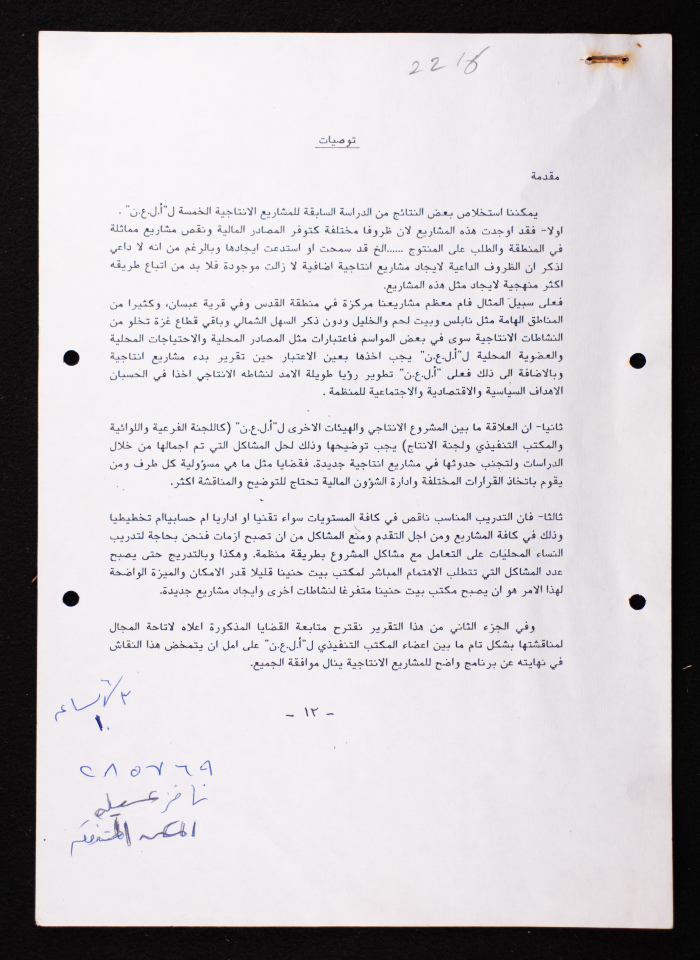 توصيات
مقدمة
يمكننا استخلاص بعض النتائج من الدراسة السابقة للمشاريع الانتاجية الخمسة ل"أ.ل.ع.ن" .
اولا- فقد اوجدت هذه المشاريع لان ظروفا مختلفة كتوفر المصادر المالية ونقص مشاريع مماثلة
في المنطقة والطلب على المنتوج ......الخ قد سمحت او استدعت ايجادها وبالرغم من انه لا داعي
لذكر ان الظروف الداعية لايجاد مشاريع انتاجية اضافية لا زالت موجودة فلا بد من اتباع طريقه
اكثر منهجية لايجاد مثل هذه المشاريع.
فعلى سبيل المثال فام معظم مشاريعنا مركزة في منطقة القدس وفي قرية عبسان، وكثيرا من
المناطق الهامة مثل نابلس وبيت لحم والخليل ودون ذكر السهل الشمالي وباقي قطاع غزة تخلو من
النشاطات الانتاجية سوى في بعض المواسم فاعتبارات مثل المصادر المحلية والاحتياجات المحلية
والعضوية المحلية ل"أ.ل.ع.ن" يجب اخذها بعين الاعتبار حين تقرير بدء مشاريع انتاجية
وبالاضافة الى ذلك فعلى "أ.ل.ع.ن" تطوير رؤيا طويلة الامد لنشاطه الانتاجي اخذا في الحسبان
الاهداف السياسية والاقتصادية والاجتماعية للمنظمة .
ثانيا- ان العلاقة ما بين المشروع الانتاجي والهيئات الاخرى ل"أ.ل.ع.ن" (كاللجنة الفرعية واللوائية
والمكتب التنفيذي ولجنة الانتاج) يجب توضيحها وذلك لحل المشاكل التي تم اجمالها من خلال
الدراسات ولتجنب حدوثها في مشاريع انتاجية جديدة. فقضايا مثل ما هي مسؤولية كل طرف ومن
يقوم باتخاذ القرارات المختلفة وادارة الشؤون المالية تحتاج للتوضيح والمناقشة اكثر.
ثالثا- فان التدريب المناسب ناقص في كافة المستويات سواء تقنيا او اداريا ام حسابياام تخطيطيا
وذلك في كافة المشاريع ومن اجل التقدم ومنع المشاكل من ان تصبح ازمات فنحن بحاجة لتدريب
النساء المحليات على التعامل مع مشاكل المشروع بطريقة منظمة. وهكذا وبالتدريج حتى يصبح
عدد المشاكل التي تتطلب الاهتمام المباشر لمكتب بيت حنينا قليلا قدر الامكان والميزة الواضحة
لهذا الامر هو ان يصبح مكتب بيت حنينا متفرغا لنشاطات اخرى وايجاد مشاريع جديدة.
وفي الجزء الثاني من هذا التقرير نقترح متابعة القضايا المذكورة اعلاه لاتاحة المجال
لمناقشتها بشكل تام ما بين اعضاء المكتب التنفيذي ل"أ.ل.ع.ن" على امل ان يتمخض هذا النقاش
في نهايته عن برنامج واضح للمشاريع الانتاجية ينال موافقة الجميع.
- ١٢ -
١٠
٢٨٥٧٦٩